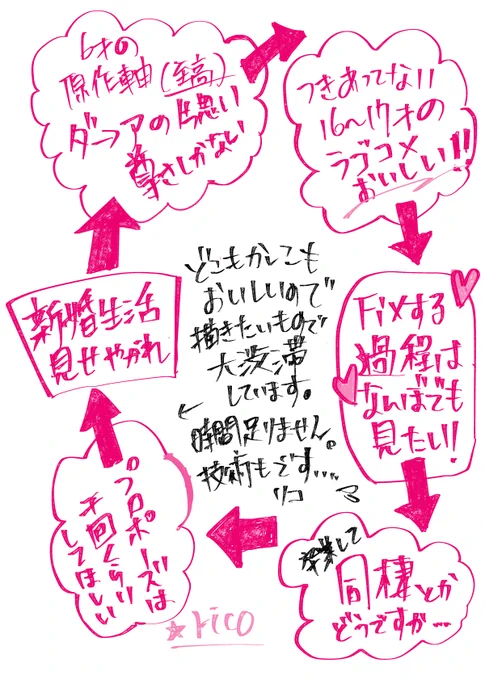 6才の
原作軸(至高)
ダーフアの思い
尊さしかない
つきあってない
16〜17才の
ラブコメ
おいしい!!
FiXする
過程は
なんぼでも
見たい!!
卒業して
同棲とか
どうですか…
プロポーズは
千回くらい
してほしい
新婚生活
見せやがれ
どこもかしこも
おいしいので
描きたいもので
大渋滞
しています。
時間足りません。
技術もです…
リコ
☆rico